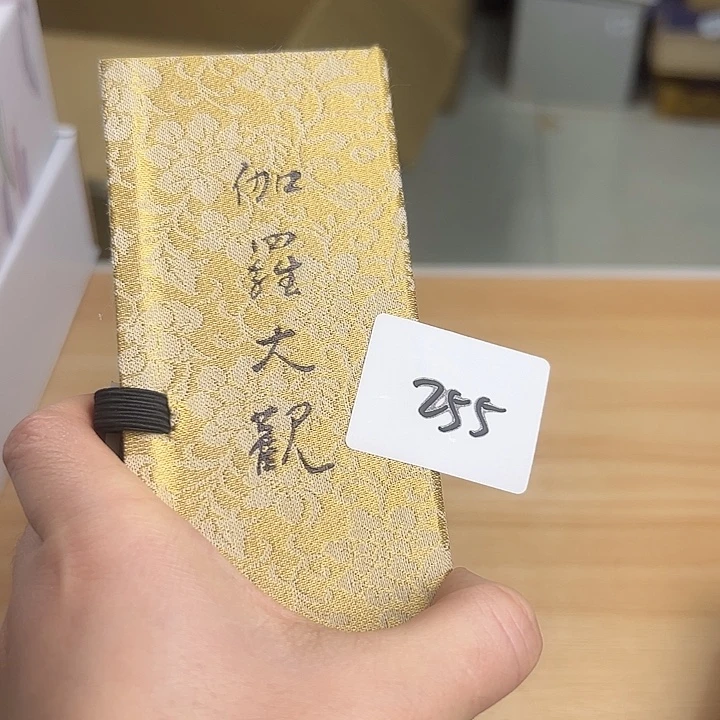 伽羅大觀
255